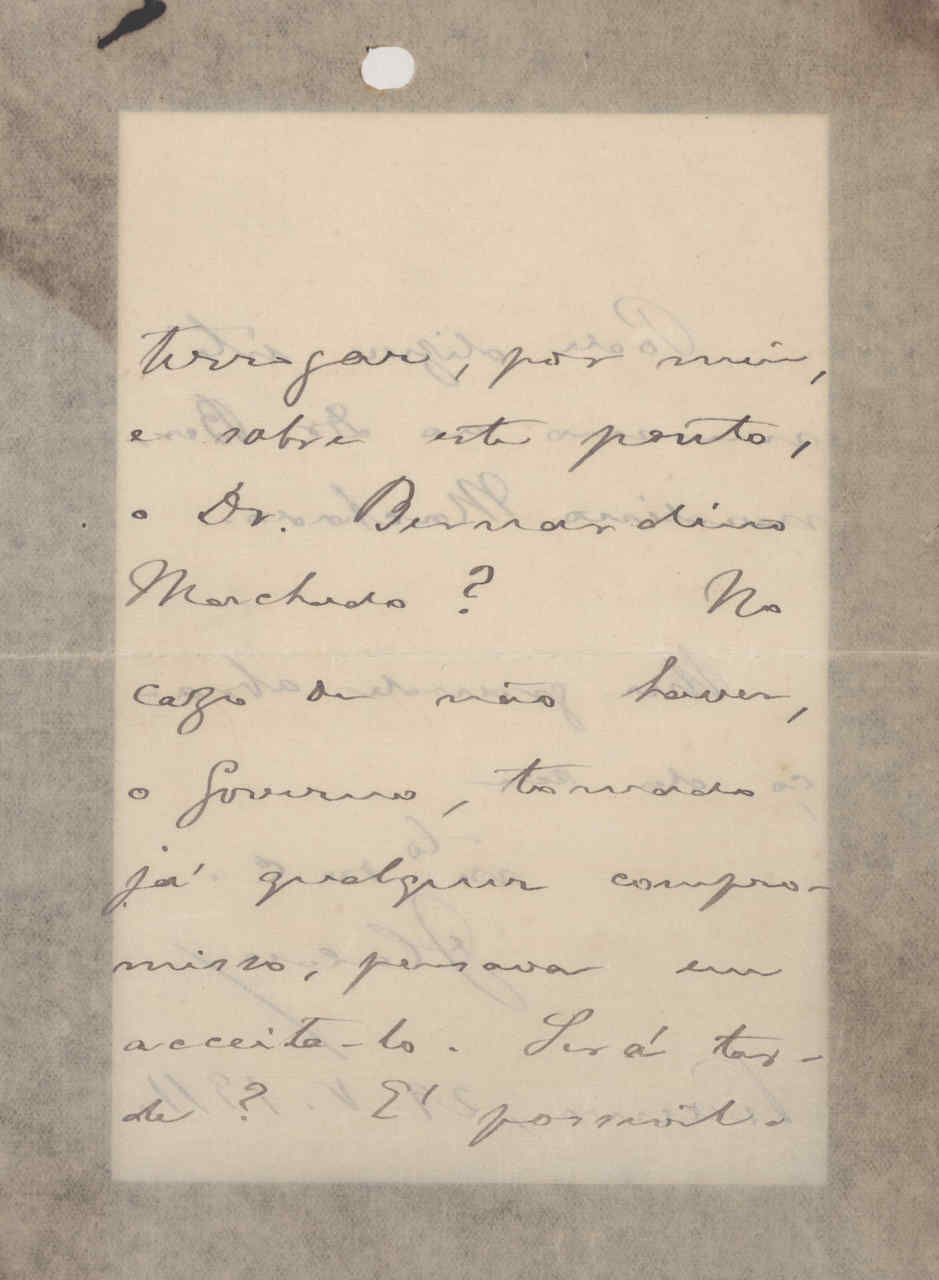 terrogar, por mim,
e sobre este ponto,
o Dr. Bernardino
Machado ? No
cazo de não haver,
o Governo, tomado
já qualquer compro-
misso, pensava em
acceita-lo. Será tar-
de ? E' possivel.